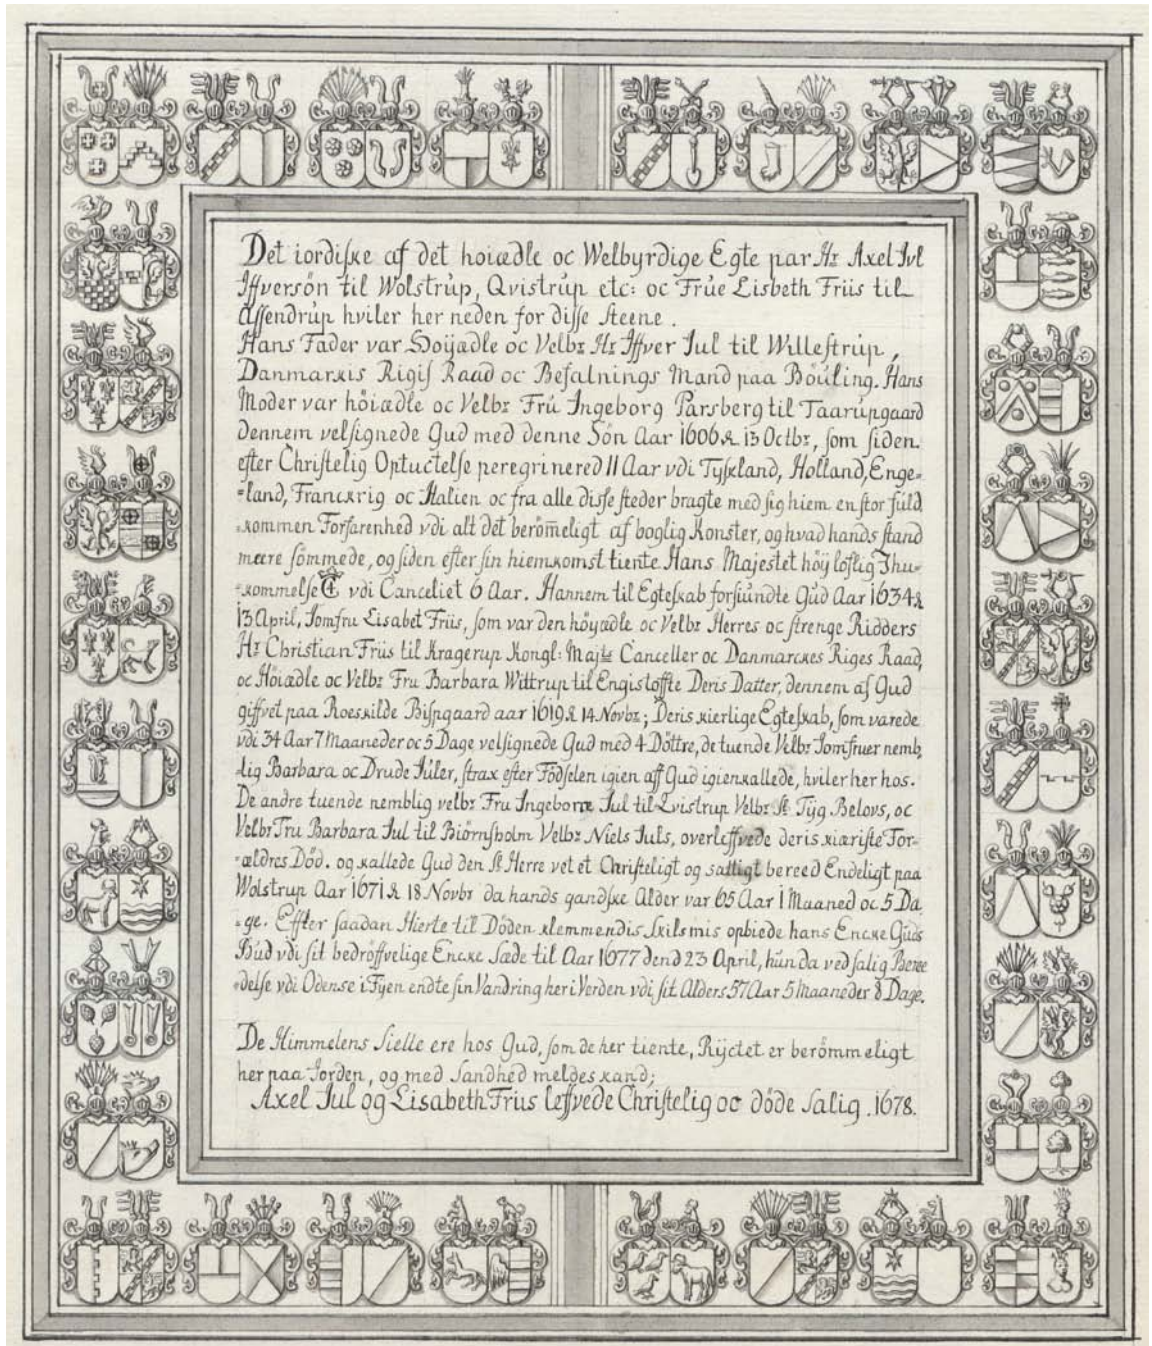 Det iordiske af det hoiædle oc Welbyrdige Egte par Hr Axel Jul
Iffversön til Wolstrŭp, Qvistrŭp etc: oc Frŭe Lisbeth Friis til
Assendrŭp hviler her neden for disse steene.
Hans Fader var Hoijædle oc Velbr Hr Iffver Jul til Willestrŭp,
Danmarkis Rigis Raad oc Befalnings Mand paa Böŭling. Hans
Moder var höiædle oc Velbr Frŭ Ingeborg Parsberg til Taarŭpgaard
dennem velsignede Gud med denne Sön Aar 1606 d. 13 Octbr, som siden
efter Christelig Optuctelse peregrinered 11 Aar vdi Tyskland, Holland, Enge-
-land, Franckrig oc Italien oc fra alle disse steder bragte med sig hiem en stor fŭld,
-kommen Forfarenhed vdi alt det berömeligt af boglig Konster, og hvad hands stand
meere sömmede, og siden efter sin hiemkomst tiente Hans Majestet höÿ löflig Ihu-
-kommelse vdi Canceliet 6 Aar. Hannem til Egteskab forsiundte Gŭd Aar 1634 d.
13 April, Jomfru Lisabet Friis, som var den höÿædle oc Velbr Herres oc strenge Ridders
Hr Christian Friis til Kragerup Kongl: Majts Canceller oc Danmarckes Riges Raad,
oc Höiædle oc Velbr Fru Barbara Wittrup til Engistoffte Deris Datter, dennem af Gud
giffvet paa Roeskilde Bispgaard aar 1619 d. 14 Novbr; Deris kierlige Egteskab, som varede
vdi 34 Aar 7 Maaneder oc 5 Dage velsignede Gud med 4 Döttre, de tuende Velbr Jomfruer nemb,
-lig Barbara oc Drude Juler, strax efter Födselen igien aff Gud igienkallede, hviler her hos.
De andre tuende nemblig velbr Fru Ingeborre Jul til Qvistrup Velbr Sl. Tÿg Belovs, oc
Velbr Fru Barbara Jul til Biörnsholm Velbr Niels Juls, overleffvede deris kiæriste For-
-ældres Död. og kallede Gud den Sl Herre vet et Christeligt og saltigt bereed Endeligt paa
Wolstrup Aar 1671 d. 18 Novbr da hands gandske Alder var 65 Aar 1 Maaned oc 5 Da
-ge. Effter saadan Hierte til Döden klemmendis Skilsmis opbiede hans Encke Gŭds
Bŭd vdi sit bedröffvelige Encke Sæde til Aar 1677 dend 23 April, hŭn da ved salig Beree
-delse vdi Odense i Fÿen endte sin Vandring her i Verden vdi sit Alders 57 Aar 5 Maaneder 8 Dage.
De Himmelens Sielle ere hos Gud, som de her tiente, Rÿctet er berömmeligt
her paa Jorden, og med Sandhed meldes kand;
Axel Jul og Lisabeth Friis leffvede Christelig oc döde salig. 1678.